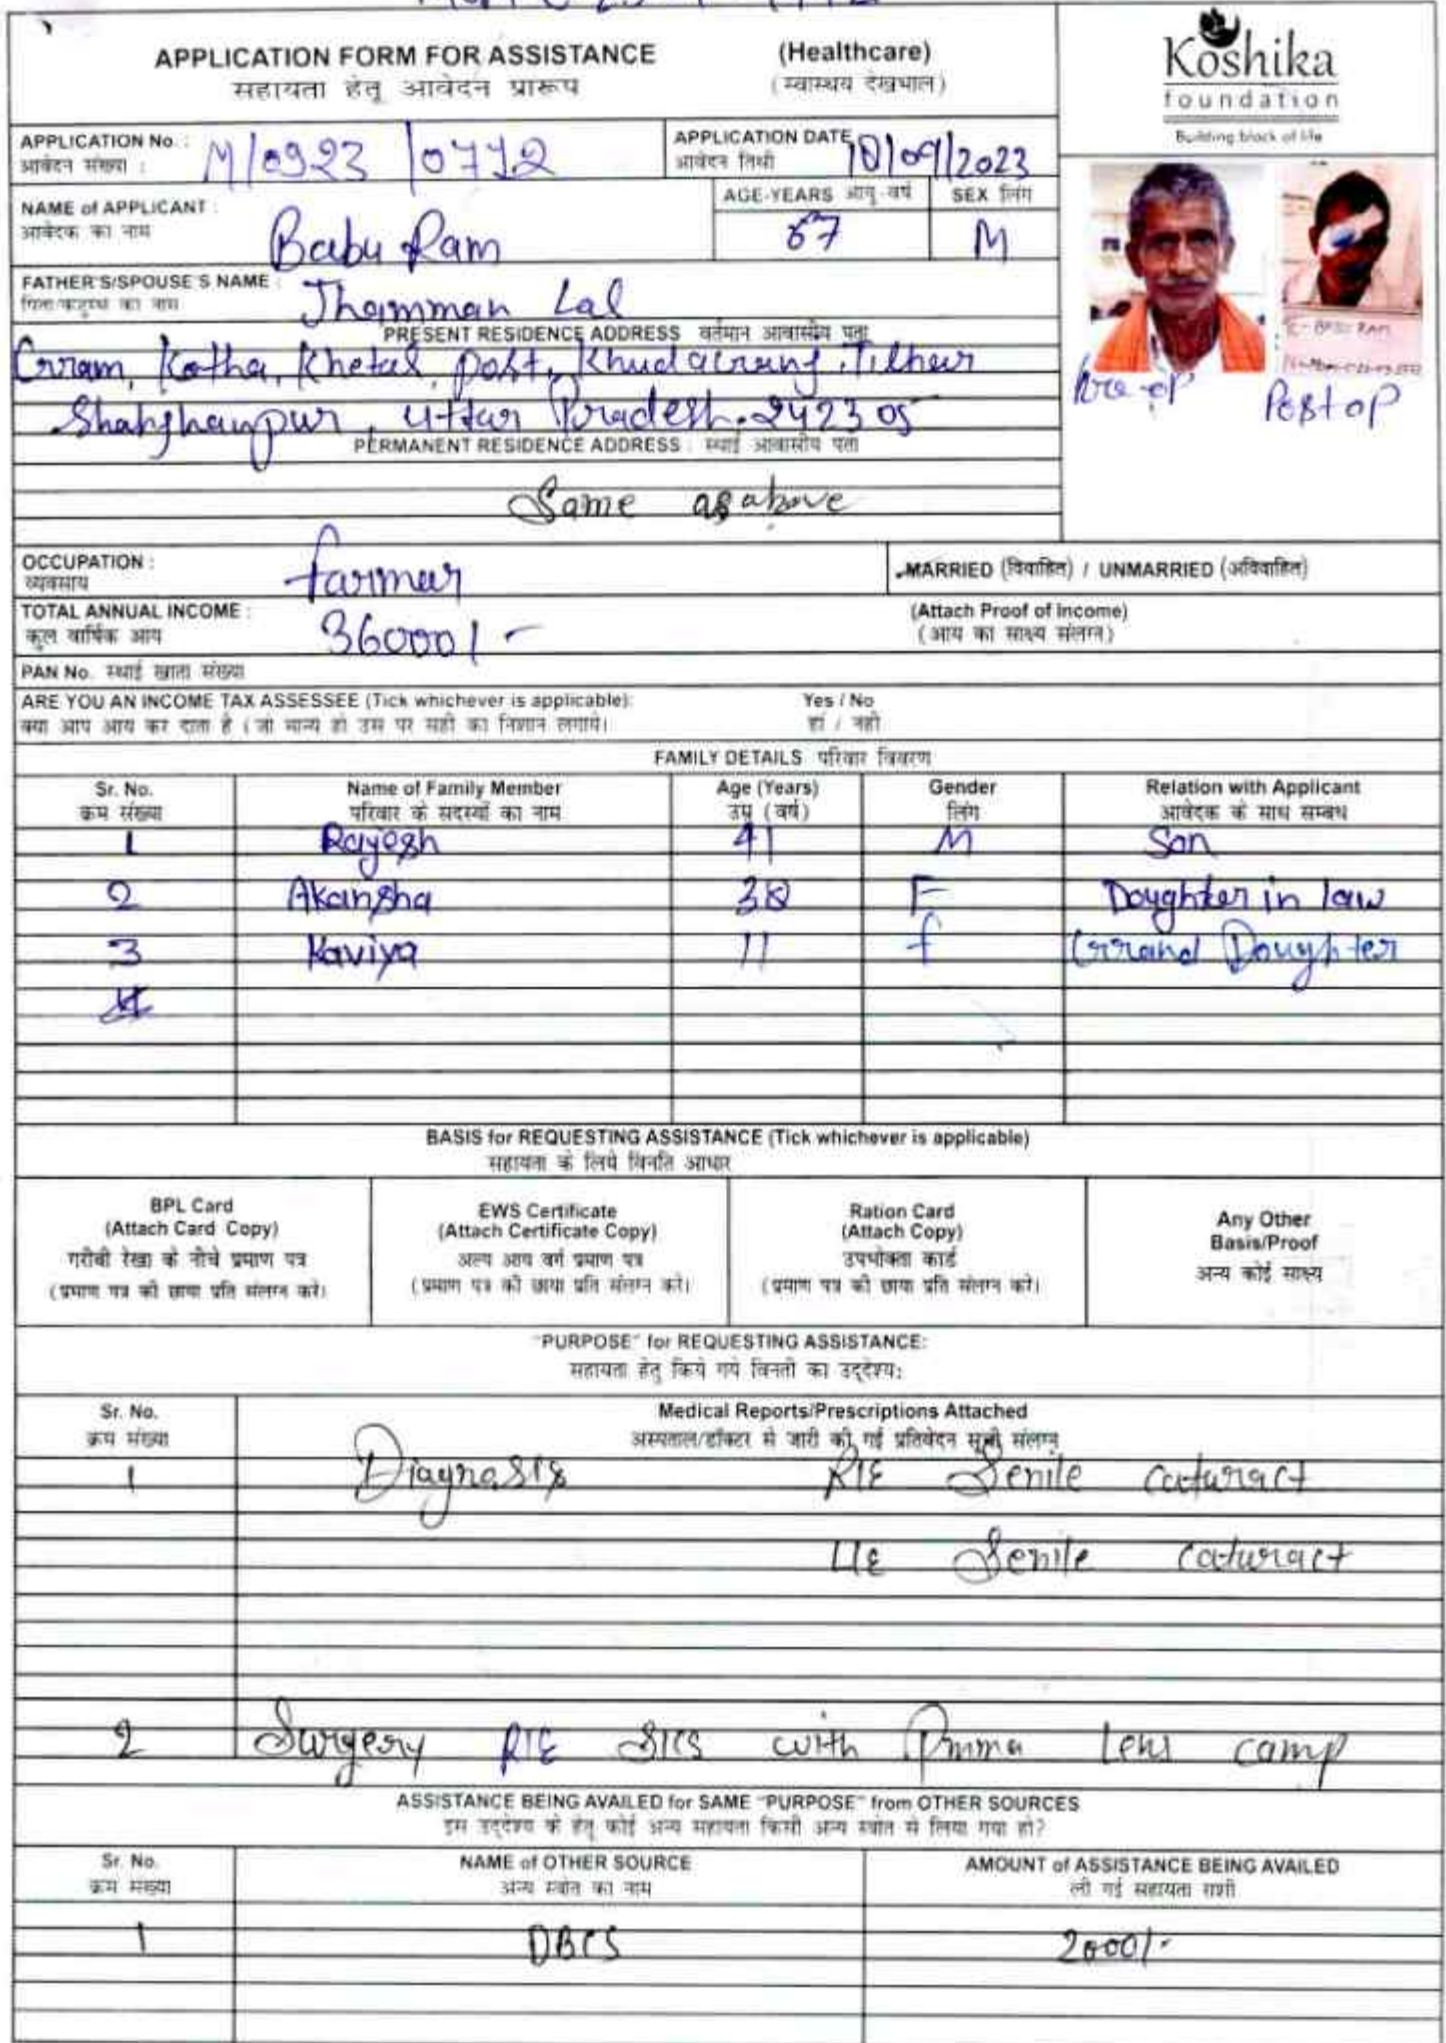 APPLICATION FORM FOR ASSISTANCE (Healthcare)
सहायता हेतू आवेदन प्रारूप (स्वास्थय देखभाल)
Koshika
foundation
Building block of life
APPLICATION No. : M/0923/0772
आवेदन संख्या :
APPLICATION DATE 18/09/2023
आवेदन तिथी
NAME of APPLICANT : Babu Ram
आवेदक का नाम
AGE-YEARS आयु-वर्ष 67
SEX लिंग M
FATHER'S/SPOUSE'S NAME : Jhamman Lal
PRESENT RESIDENCE ADDRESS वर्तमान आवासीय पता
Gram, Kotha, Khetal, post, Tilhar
Uttar Pradesh. 242305
PERMANENT RESIDENCE ADDRESS : स्थाई आवासीय पता
Same as above
Pre-op
Post op
OCCUPATION : farmer
व्यवसाय
MARRIED (विवाहित) / UNMARRIED (अविवाहित)
TOTAL ANNUAL INCOME : 36000/-
कुल वार्षिक आय
(Attach Proof of Income)
(आय का साक्ष्य संलग्न)
PAN No. स्थाई खाता संख्या
ARE YOU AN INCOME TAX ASSESSEE (Tick whichever is applicable): Yes / No
क्या आप आय कर दाता है (जो मान्य हो उस पर सही का निशान लगाये। हां / नही
FAMILY DETAILS परिवार विवरण
Sr. No. Name of Family Member Age (Years) Gender Relation with Applicant
क्रम संख्या परिवार के सदस्यों का नाम उम्र (वर्ष) लिंग आवेदक के साथ सम्बंध
1 Rajesh 41 M Son
2 Akansha 38 F Doughter in law
3 Kaviya 11 f Grrand Doughter
BASIS for REQUESTING ASSISTANCE (Tick whichever is applicable)
सहायता के लिये विनति आधार
BPL Card
(Attach Card Copy)
गरीबी रेखा के नीचे प्रमाण पत्र
(प्रमाण पत्र की छाया प्रति संलग्न करे।
EWS Certificate
(Attach Certificate Copy)
अल्प आय वर्ग प्रमाण पत्र
(प्रमाण पत्र की छाया प्रति संलग्न करे।
Ration Card
(Attach Copy)
उपभोक्ता कार्ड
(प्रमाण पत्र की छाया प्रति संलग्न करे।
Any Other
Basis/Proof
अन्य कोई साक्ष्य
"PURPOSE" for REQUESTING ASSISTANCE:
सहायता हेतु किये गये विनती का उद्देश्य:
Sr. No. Medical Reports/Prescriptions Attached
क्रम संख्या अस्पताल/डॉक्टर से जारी की गई प्रतिवेदन सूची संलग्न
1 Diagnosis R/E Senile Caturact
L/E Senile Caturact
2 Surgery R/E SICS with Pmma Lens camp
ASSISTANCE BEING AVAILED for SAME "PURPOSE" from OTHER SOURCES
इस उद्देश्य के हेतू कोई अन्य सहायता किसी अन्य स्त्रोत से लिया गया हो?
Sr. No. NAME of OTHER SOURCE AMOUNT of ASSISTANCE BEING AVAILED
क्रम संख्या अन्य स्त्रोत का नाम ली गई सहायता राशी
1 DBCS 2000/-